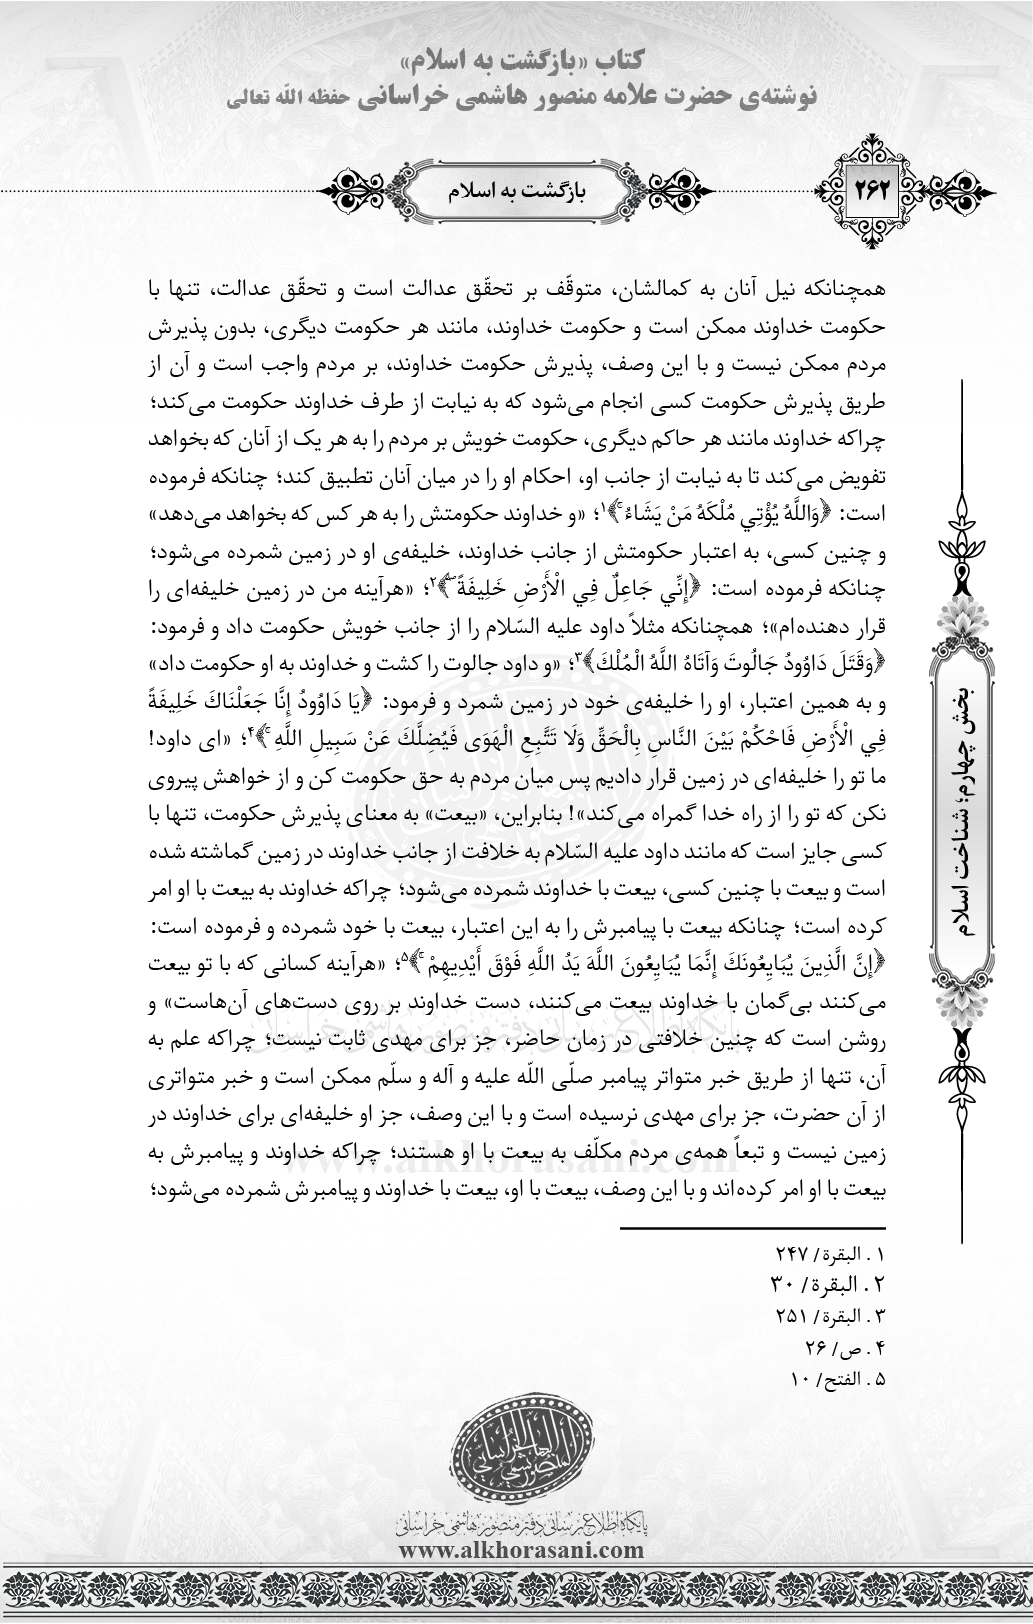 کتاب «بازگشت به اسلام»
نوشته‌ی حضرت علامه منصور هاشمی خراسانی حفظه الله تعالی
بازگشت به اسلام
۲۶۲
همچنانکه نیل آنان به کمالشان، متوقّف بر تحقّق عدالت است و تحقّق عدالت، تنها با
حکومت خداوند ممکن است و حکومت خداوند، مانند هر حکومت دیگری، بدون پذیرش
مردم ممکن نیست و با این وصف، پذیرش حکومت خداوند، بر مردم واجب است و آن از
طریق پذیرش حکومت کسی انجام می‌شود که به نیابت از طرف خداوند حکومت می‌کند؛
چراکه خداوند مانند هر حاکم دیگری، حکومت خویش بر مردم را به هر یک از آنان که بخواهد
تفویض می‌کند تا به نیابت از جانب او، احکام او را در میان آنان تطبیق کند؛ چنانکه فرموده
است: ﴿وَاللَّهُ يُؤْتِي مُلْكَهُ مَنْ يَشَاءُ ۚ﴾۱؛ «و خداوند حکومتش را به هر کس که بخواهد می‌دهد»
و چنین کسی، به اعتبار حکومتش از جانب خداوند، خلیفه‌ی او در زمین شمرده می‌شود؛
چنانکه فرموده است: ﴿إِنِّي جَاعِلٌ فِي الْأَرْضِ خَلِيفَةً ۖ﴾۲؛ «هرآینه من در زمین خلیفه‌ای را
قرار دهنده‌ام»؛ همچنانکه مثلاً داود علیه السّلام را از جانب خویش حکومت داد و فرمود:
﴿وَقَتَلَ دَاوُودُ جَالُوتَ وَآتَاهُ اللَّهُ الْمُلْكَ﴾۳؛ «و داود جالوت را کشت و خداوند به او حکومت داد»
و به همین اعتبار، او را خلیفه‌ی خود در زمین شمرد و فرمود: ﴿يَا دَاوُودُ إِنَّا جَعَلْنَاكَ خَلِيفَةً
فِي الْأَرْضِ فَاحْكُمْ بَيْنَ النَّاسِ بِالْحَقِّ وَلَا تَتَّبِعِ الْهَوَى فَيُضِلَّكَ عَنْ سَبِيلِ اللَّهِ ۚ﴾۴؛ «ای داود!
ما تو را خلیفه‌ای در زمین قرار دادیم پس میان مردم به حق حکومت کن و از خواهش پیروی
نکن که تو را از راه خدا گمراه می‌کند»! بنابراین، «بیعت» به معنای پذیرش حکومت، تنها با
کسی جایز است که مانند داود علیه السّلام به خلافت از جانب خداوند در زمین گماشته شده
است و بیعت با چنین کسی، بیعت با خداوند شمرده می‌شود؛ چراکه خداوند به بیعت با او امر
کرده است؛ چنانکه بیعت با پیامبرش را به این اعتبار، بیعت با خود شمرده و فرموده است:
﴿إِنَّ الَّذِينَ يُبَايِعُونَكَ إِنَّمَا يُبَايِعُونَ اللَّهَ يَدُ اللَّهِ فَوْقَ أَيْدِيهِمْ ۚ﴾۵؛ «هرآینه کسانی که با تو بیعت
می‌کنند بی‌گمان با خداوند بیعت می‌کنند، دست خداوند بر روی دست‌های آن‌هاست» و
روشن است که چنین خلافتی در زمان حاضر، جز برای مهدی ثابت نیست؛ چراکه علم به
آن، تنها از طریق خبر متواتر پیامبر صلّی اللّه علیه و آله و سلّم ممکن است و خبر متواتری
از آن حضرت، جز برای مهدی نرسیده است و با این وصف، جز او خلیفه‌ای برای خداوند در
زمین نیست و تبعاً همه‌ی مردم مکلّف به بیعت با او هستند؛ چراکه خداوند و پیامبرش به
بیعت با او امر کرده‌اند و با این وصف، بیعت با او، بیعت با خداوند و پیامبرش شمرده می‌شود؛
بخش چهارم؛ شناخت اسلام
۱ . البقرة/ ۲۴۷
۲ . البقرة/ ۳۰
۳ . البقرة/ ۲۵۱
۴ . ص/ ۲۶
۵ . الفتح/ ۱۰
المنصور الهاشمي الخراساني
پایگاه اطلاع‌رسانی دفتر منصور هاشمی خراسانی
www.alkhorasani.com